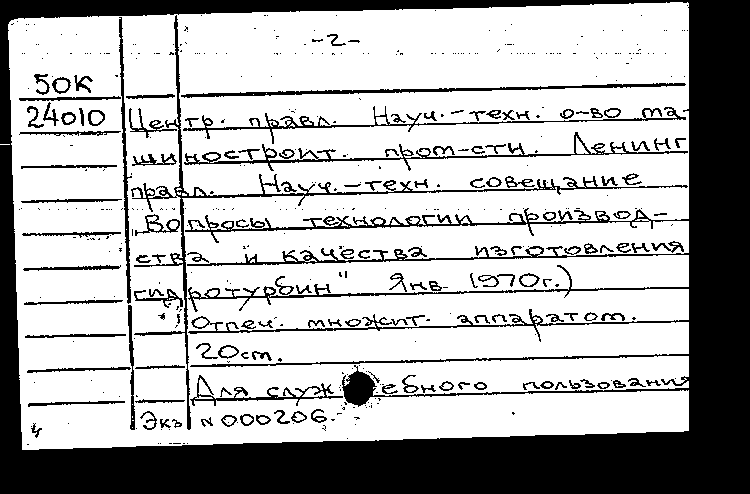 -2-
50К
24010 Центр. правл. Науч.-техн. о-во ма-
шиностроит. пром-сти. Ленинг
правл. Науч.-техн. совещание
"Вопросы технологии производ-
ства и качества изготовления
гидротурбин" Янв 1970г.)
Отпеч. множит. аппаратом.
20ст.
Для служебного пользования
Экз N 000206.
4